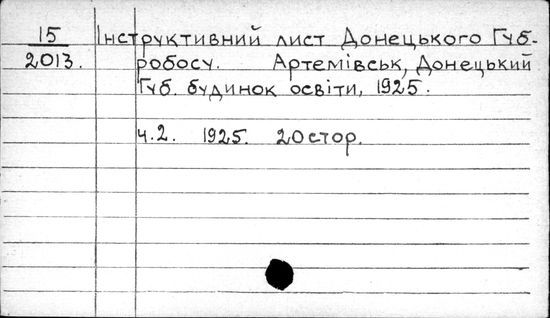 15 Інструктивний лист Донецького Губ-
2013. робосу. Артемівськ, Донецький
Губ. будинок освіти, 1925.
ч.2. 1925. 20 стор.